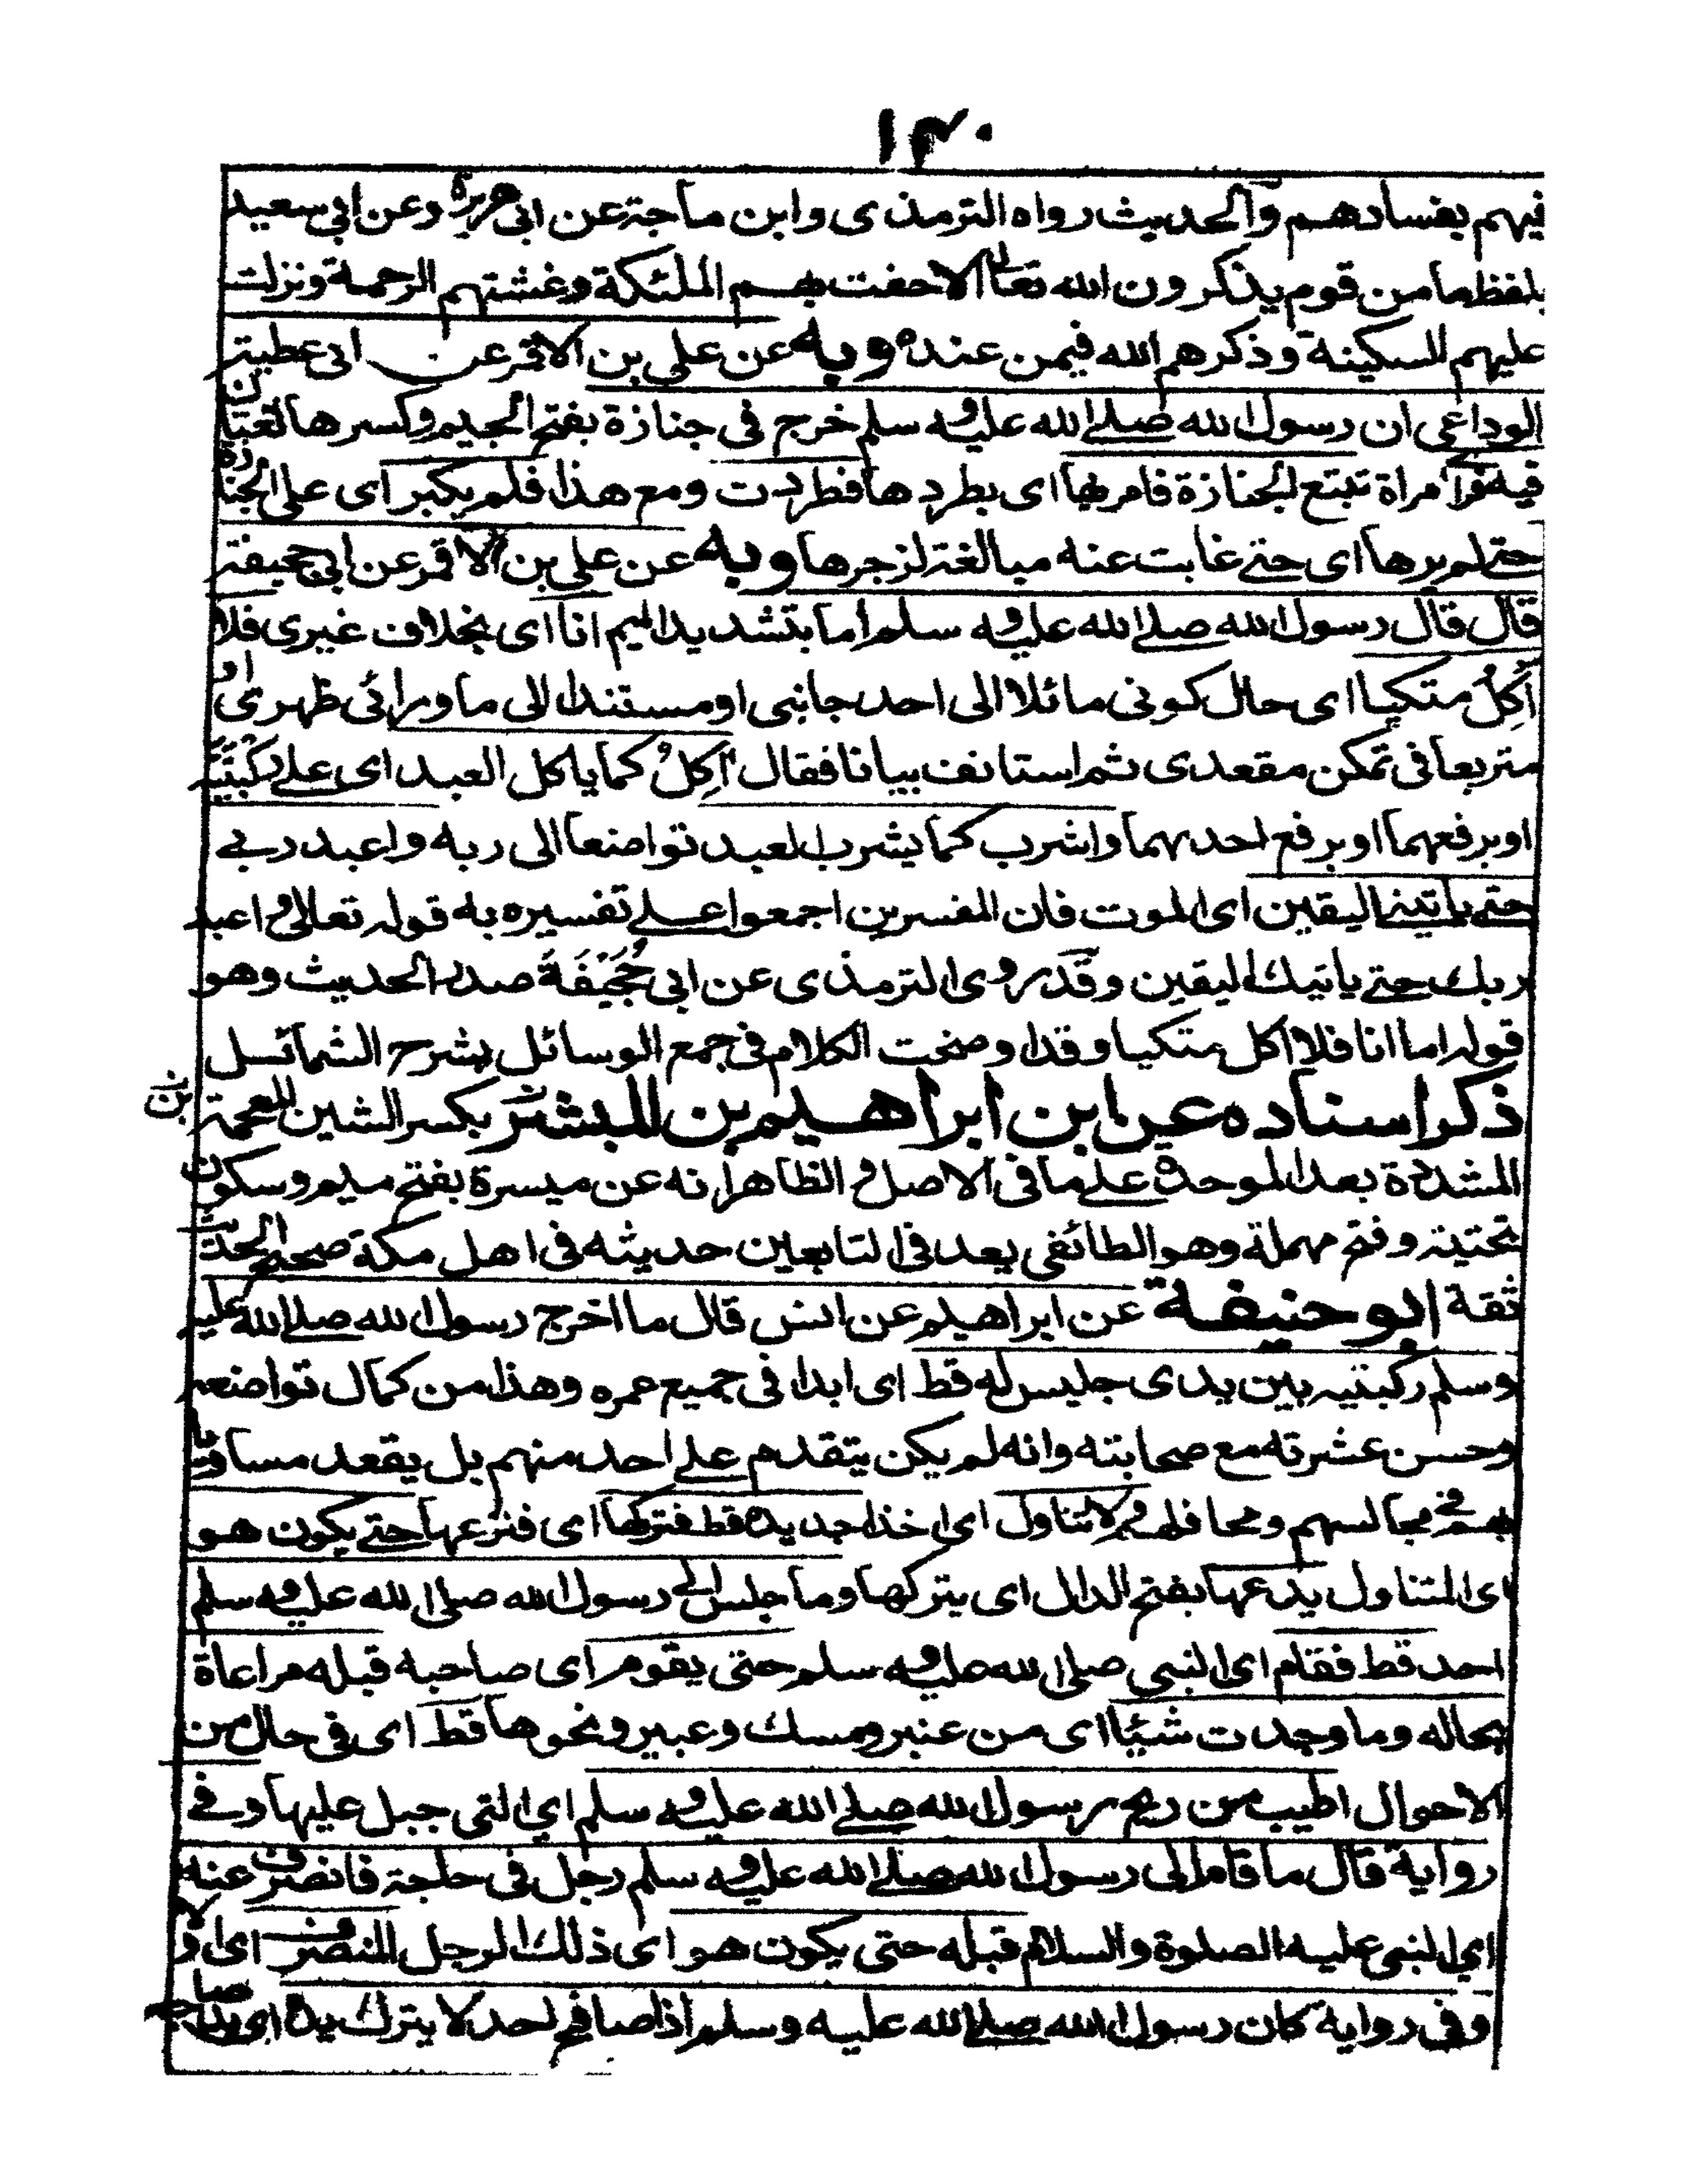 ١٣٠
فيهم بفسادهم والحديث رواه الترمذى وابن ماجة عن ابى هريرة وعن ابى سعيد
بلفظ ما من قوم يذكرون الله تعالى الا حفت بهم الملئكة وغشتهم الرحمة ونزلت
عليهم السكينة وذكرهم الله فيمن عنده وبه عن على بن الاقمر عن ابى عطية
الوداعى ان رسول الله صلى الله عليه وسلم خرج فى جنازة بفتح الجيم وكسرها لغتان
فيه فراى مراة تتبع الجنازة فامر بها اى بطردها فطردت ومع هذا فلم يكبر اى على الجنازة
حتى لم يرها اى حتى غابت عنه مبالغة لزجرها وبه عن على بن الاقمر عن ابى جحيفة
قال قال رسول الله صلى الله عليه وسلم اما بتشديد الميم انا اى بخلاف غيرى فلا
آكل متكيا اى حال كونى مائلا الى احد جانبى او مستندا الى ما ورائى ظهرى او
متربعا فى تمكن مقعدى ثم استانف بيانا فقال آكل كما ياكل العبد اى على ركبتيه
او برفعهما او برفع احدهما واشرب كما يشرب العبد تواضعا الى ربه واعبد ربى
حتى ياتينى اليقين اى الموت فان المفسرين اجمعوا على تفسيره به قوله تعالى واعبد
ربك حتى ياتيك اليقين وقد روى الترمذى عن ابى جُحَيْفَةَ صدر الحديث وهو
قوله اما انا فلا اكل متكيا وقد اوضحت الكلام فى جمع الوسائل بشرح الشمائل
ذكر اسناده عن ابن ابراهيم بن المبشر بكسر الشين المعجمة
المشددة بعد الموحدة على ما فى الاصل والظاهر انه عن ميسرة بفتح ميم وسكون
تحتية وفتح مهملة وهو الطائفى يعد فى التابعين حديثه فى اهل مكة صحيح الحديث
ثقة ابو حنيفة عن ابراهيم عن انس قال ما اخرج رسول الله صلى الله عليه
وسلم ركبتيه بين يدى جليس له قط اى ابدا فى جميع عمره وهذا من كمال تواضعه
وحسن عشرته مع صحابته وانه لم يكن يتقدم على احد منهم بل يقعد مساويا
بهم فى مجالسهم ومحافلهم ولا تناول اى اخذ احد يده قط فتركها اى فنزعها حتى يكون هو
اى المتناول يدعها بفتح الدال اى يتركها وما جلس الى رسول الله صلى الله عليه وسلم
احد قط فقام اى النبى صلى الله عليه وسلم حتى يقوم اى صاحبه قبله مراعاة
بحاله وما وجدت شيئا اى من عنبر ومسك وعبير ونحوها قط اى فى حال من
الاحوال اطيب من ريح رسول الله صلى الله عليه وسلم اى التى جبل عليها وفى
رواية قال ما قام الى رسول الله صلى الله عليه وسلم رجل فى حاجة فانصرف عنه
اى النبى عليه الصلوة والسلام قبله حتى يكون هو اى ذلك الرجل المنصرف اى اولا
وفى رواية كان رسول الله صلى الله عليه وسلم اذا صافح احد لا يترك يده اى يد صاحبه